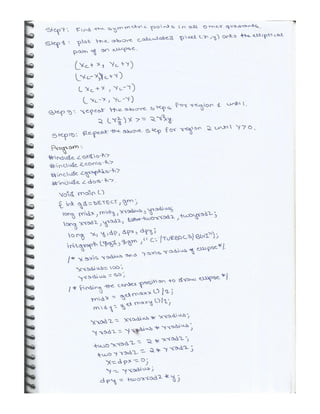 Step7: Find the symmetric points in all other quadrants.
Step8: plot the above calculated pixel (x,y) onto the elliptical
path of an ellipse.
(Xc+x, Yc+y)
(Xc-x, Yc+y)
(Xc+x, Yc-y)
(Xc-x, Yc-y)
Step9: repeat the above steps for region 1 until
Step10: Repeat the above step for region 2 until y>0.
Program:
#include <stdio.h>
#include <conio.h>
#include <graphics.h>
#include <dos.h>
void main()
{ int gd=DETECT,gm;
long midx, midy, xradius, yradius;
long xrad2, yrad2, twoxrad2, twoyrad2;
long x, y, dp, dpx, dpy;
initgraph(&gd, &gm, "C:/TURBOC3/BGI");
/* x axis radius and y axis radius of ellipse */
xradius=100;
yradius=50;
/* finding the center position to draw ellipse */
midx = getmaxx()/2;
midy = getmaxy()/2;
xrad2 = xradius * xradius;
yrad2 = yradius * yradius;
twoxrad2 = 2 * xrad2;
twoyrad2 = 2 * yrad2;
x=dpx=0;
y=yradius;
dpy = twoxrad2 * y;